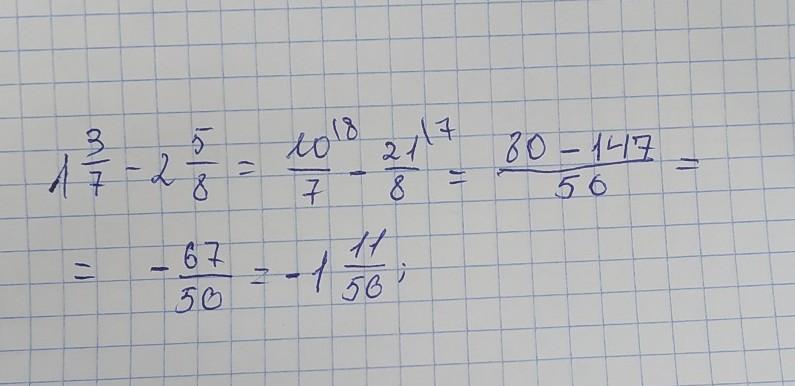 1 3/7 - 2 5/8 = 10\8/7 - 21\7/8 = 80 - 147/56 =
= - 67/56 = - 1 11/56;